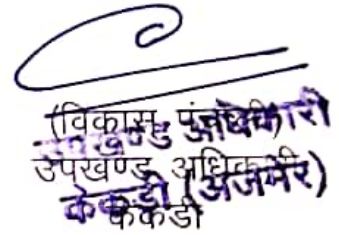 (विकास पंचोली)
उपखण्ड अधिकारी
उपखण्ड अधिकारी
केकड़ी (अजमेर)
केकडी